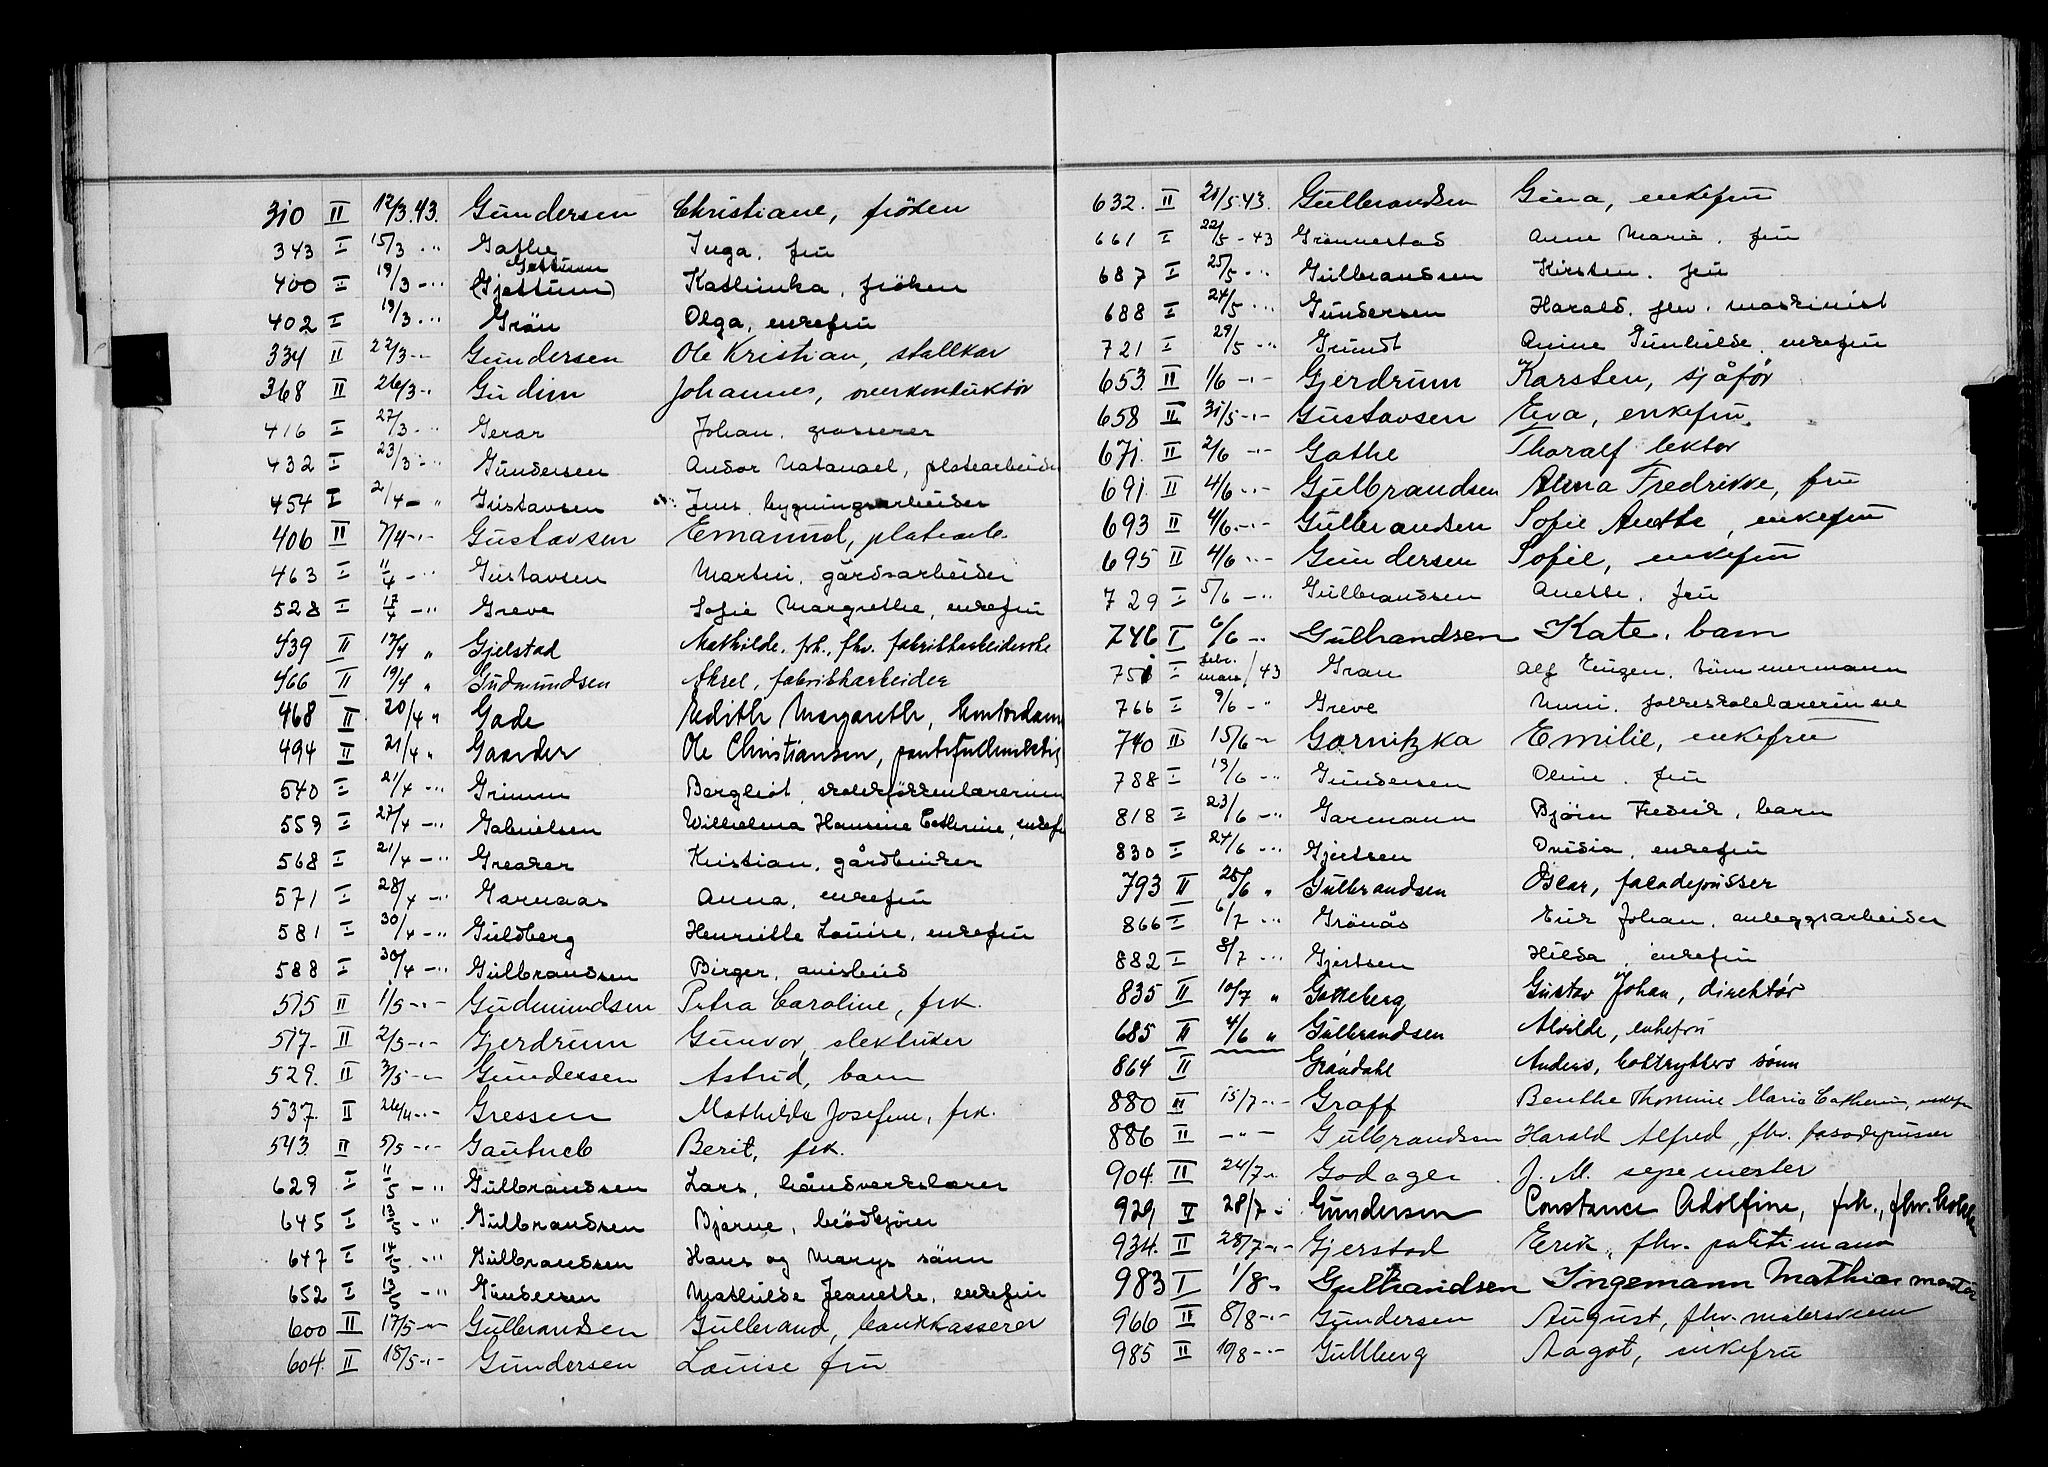 310 II 12/3.43. Gundersen Christiane, fröken
343 I 15/3 -"- Gathe Inga, fru
Gettum
400 I 19/3 -"- (Gjettum) Kathinka, fröken
402 I 19/3 -"- Grön Olga, enkefru
334 II 22/3 -"- Gundersen Ole Kristian, stallkar
368 II 26/3 -"- Gudim Johannes, overkonduktör
416 I 27/3 -"- Gerar Johan, grosserer
432 I 23/3 -"- Gundersen Andor Natanael, platearbeider
454 I 2/4 -"- Gustavsen Jens, bygningsarbeider
406 II 7/4 -"- Gustavsen Emanuel, platearb.
463 I 11/4 -"- Gustavsen Martin, gårdsarbeider
528 I 17/4 -"- Greve Sofie Margrethe, enkefru
439 II 17/4 " Gjelstad Mathilde, frk., fhv. fabrikkarbeiderske
466 II 19/4 " Gudmundsen Aksel, fabrikkarbeider
468 II 20/4 " Gade Edith Margareth, kontordame
494 II 21/4 " Gaarder Ole Christiansen, pantefullmektig
540 I 21/4 -"- Grimm Bergliot, skolekjökkenlærerinne
559 I 27/4 -"- Gabrielsen Wilhelmina Hansine Cathrine, enkefru
568 I 21/4 -"- Greaker Kristian, gårdbruker
571 I 28/4 -"- Garnaas Anna, enkefru
581 I 30/4 -"- Guldberg Henriette Louise, enkefru
588 I 30/4 -"- Gulbrandsen Birger, avisbud
515 II 1/5 -"- Gudmundsen Petra Caroline, frk.
517. II 2/5 -"- Gjerdrum Gunvor, elektriker
529. II 3/5 -"- Gundersen Astrid, barn
537. II 26/4 -"- Gressen Mathilde Josefine, frk.
543 II 5/5 -"- Gautneb Berit, frk.
629 I 11/5 -"- Gulbrandsen Lars, håndverkslærer
645 I 13/5 -"- Gulbrandsen Bjarne, brödkjörer
647 I 14/5 -"- Gulbrandsen Hans og Marys sönn
652 I 13/5 -"- Gundersen Mathilde Jeanette, enkefru
600 II 17/5 -"- Gulbrandsen Gulbrand, bankkasserer
604. II 18/5 -"- Gundersen Louise fru
632. II 21/5.43. Gulbrandsen Gina, enkefru
661 I 22/5 - 43 Grønnestad Anne Marie, fru
687 I 25/5 -"- Gulbrandsen Kirsten, fru
688 I 24/5 -"- Gundersen Harald, fhv. maskinist
721 I 29/5 -"- Grundt Anine Gunhilde, enkefru
653 II 1/6 -"- Gjerdrum Karsten, sjåför
658 II 31/5 -"- Gustavsen Eva, enkefru.
671. II 2/6 -"- Gathe Thoralf lektor
691. II 4/6 -"- Gulbrandsen Alma Fredrikke, fru
693 II 4/6 -"- Gulbrandsen Sofie Anette, enkefru
695 II 4/6 -"- Gundersen Sofie, enkefru
729 I 5/6 -"- Gulbrandsen Anette, fru
746 I 6/6 -"- Gulbrandsen Kate, barn
751 I febr. mars/43 Gran Alf Eugen, tömmermann
766 I 9/6 -"- Greve Unni, folkeskolelærerinne
740 II 15/6 -"- Gornitzka Emilie, enkefru
788 I 19/6 -"- Gundersen Oline, fru
818 I 23/6 -"- Garmann Björn Fredrik, barn
830 I 24/6 -"- Gjertsen Ovidia, enkefru
793 II 25/6 " Gulbrandsen Oscar, fasadepusser
866 I 6/7 -"- Grönås Erik Johan, anleggsarbeider
882 I 8/7 -"- Gjertsen Hilda, enkefru
835 II 10/7 " Gotteberg Gustav Johan, direktör
685 II 4/6 " Gulbrandsen Alvilde, enkefru
864 II Gröndahl Anders, boktrykkers sönn
880 II 15/7 -"- Graff Benthe Thomine Marie Cathrine, enkefru
886 II -"- Gulbrandsen Harald Alfred, fhv. fasadepusser
904. II 24/7 -"- Godager J. M. sepemester
929 II 28/7 -"- Gundersen Constance Adolfine, frk., fhv. kokke
934. II 28/7 -"- Gjerstad Erik, fhv. politimann
983 I 1/8 -"- Gulbrandsen Ingemann Mathias montör
966 II 8/8 -"- Gundersen August, fhv. malersvenn
985 II 10/8 -"- Gullberg Aagot, enkefru